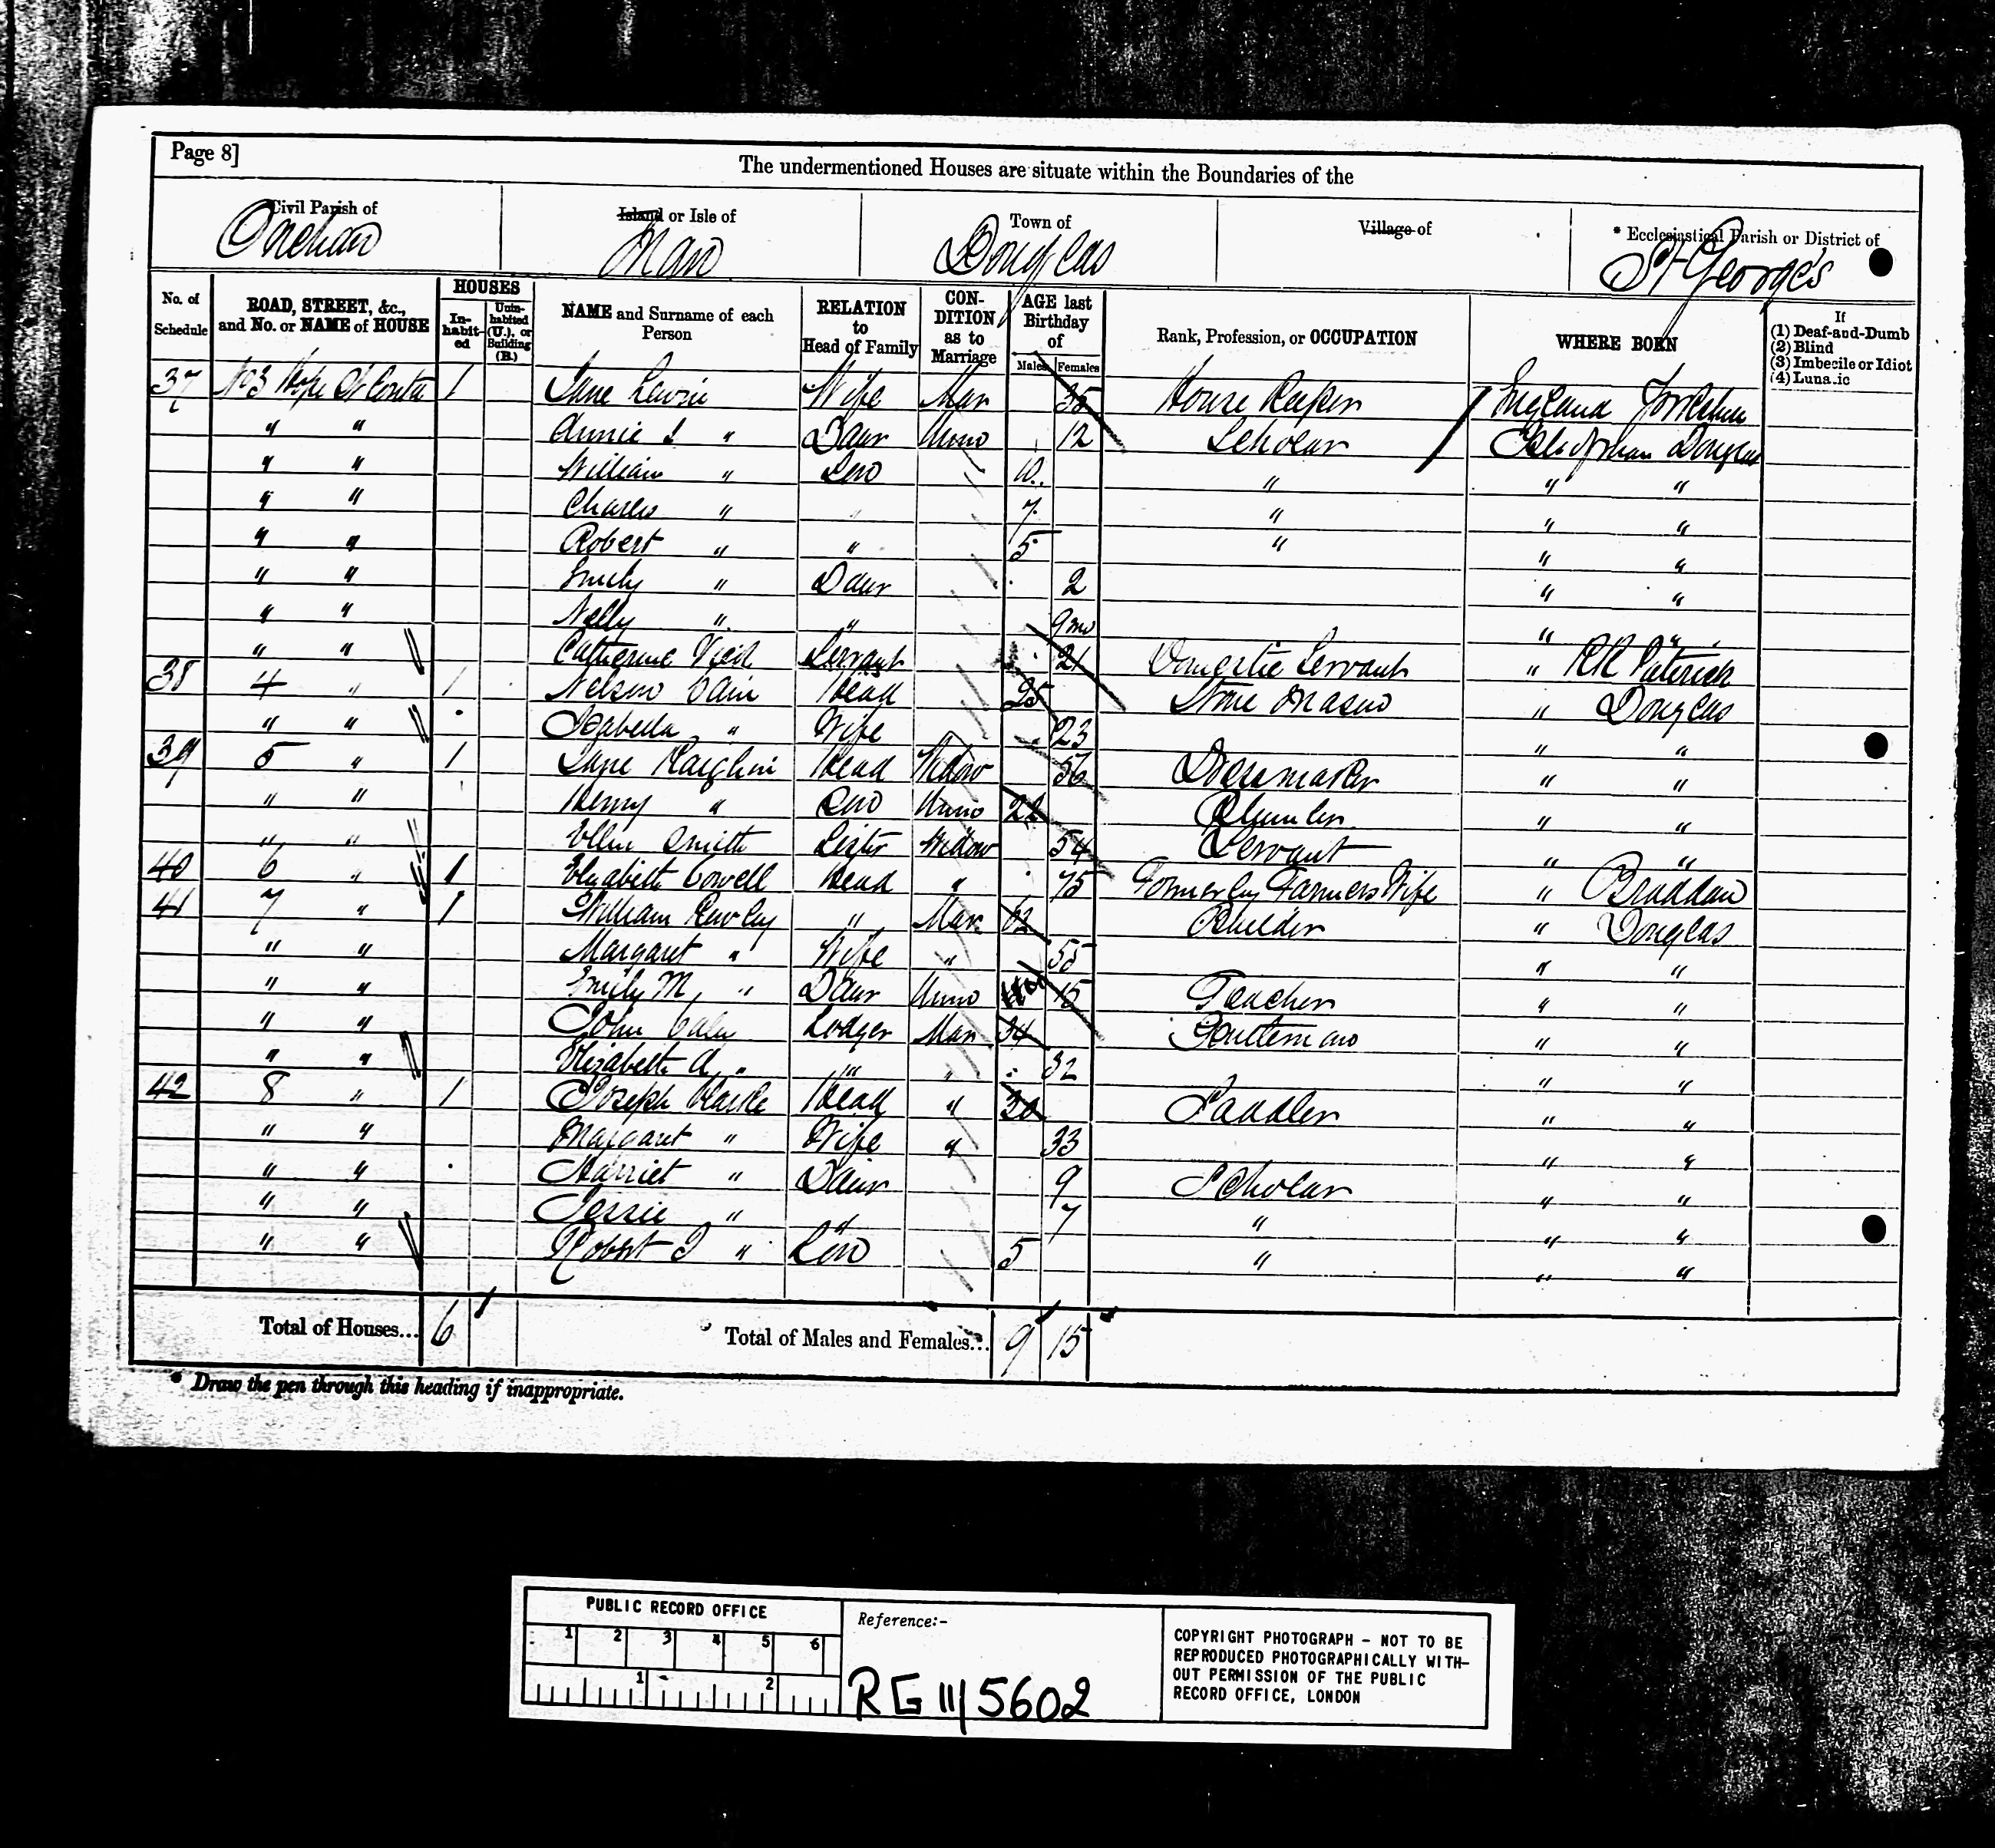 Page 8]
The undermentioned Houses are situate within the Boundaries of the
Civil Parish of Onchan
Island or Isle of Man
Town of Douglas
Village of
* Ecclesiastical Parish or District of St George's
No. of Schedule ROAD, STREET, &c., and No. or NAME of HOUSE HOUSES In-habit-ed Unin-habited (U.), or Building (B.) NAME and Surname of each Person RELATION to Head of Family CON-DITION as to Marriage AGE last Birthday of Males Females Rank, Profession, or OCCUPATION WHERE BORN If (1) Deaf-and-Dumb (2) Blind (3) Imbecile or Idiot (4) Lunatic
37 No 3 Hope St 1 Jane Wife Mar 35 House Keeper England Yorkshire
" " Annie " Daur Unm 12 Scholar Isle of Man Douglas
" " William " Son 10 " " "
" " Charles " " 7 " " "
" " Robert " " 5 " " "
" " Emily " Daur 2 " "
" " Nelly " " 9mo " "
" " Catherine Servant 21 Domestic Servant " KK Patrick
38 4 " 1 Nelson Cain Head 25 Stone Mason " Douglas
" " Isabella " Wife 23 " "
39 5 " 1 Jane Head Widow 56 Dressmaker " "
" " Henry " Son Unm 22 Plumber " "
" " Ellen Smith Sister Widow 54 Servant " "
40 6 " 1 Elizabeth Cowell Head " 75 Formerly Farmers Wife " Braddan
41 7 " 1 William Kewley " Mar 62 Builder " Douglas
" " Margaret " Wife " 55 " "
" " Emily M " Daur Unm 15 Teacher " "
" " John Lodger Mar 34 Gentleman " "
" " Elizabeth A " " " 32 " "
42 8 " 1 Joseph Clarke Head " 30 Saddler " "
" " Margaret " Wife " 33 " "
" " Harriet " Daur 9 Scholar " "
" " Jessie " " 7 " " "
" " Robert J " Son 5 " " "
Total of Houses... 6 Total of Males and Females... 9 15
* Draw the pen through this heading if inappropriate.
PUBLIC RECORD OFFICE
1 2 3 4 5 6
1 2
Reference:-
RG 11/5602
COPYRIGHT PHOTOGRAPH - NOT TO BE
REPRODUCED PHOTOGRAPHICALLY WITH-
OUT PERMISSION OF THE PUBLIC
RECORD OFFICE, LONDON